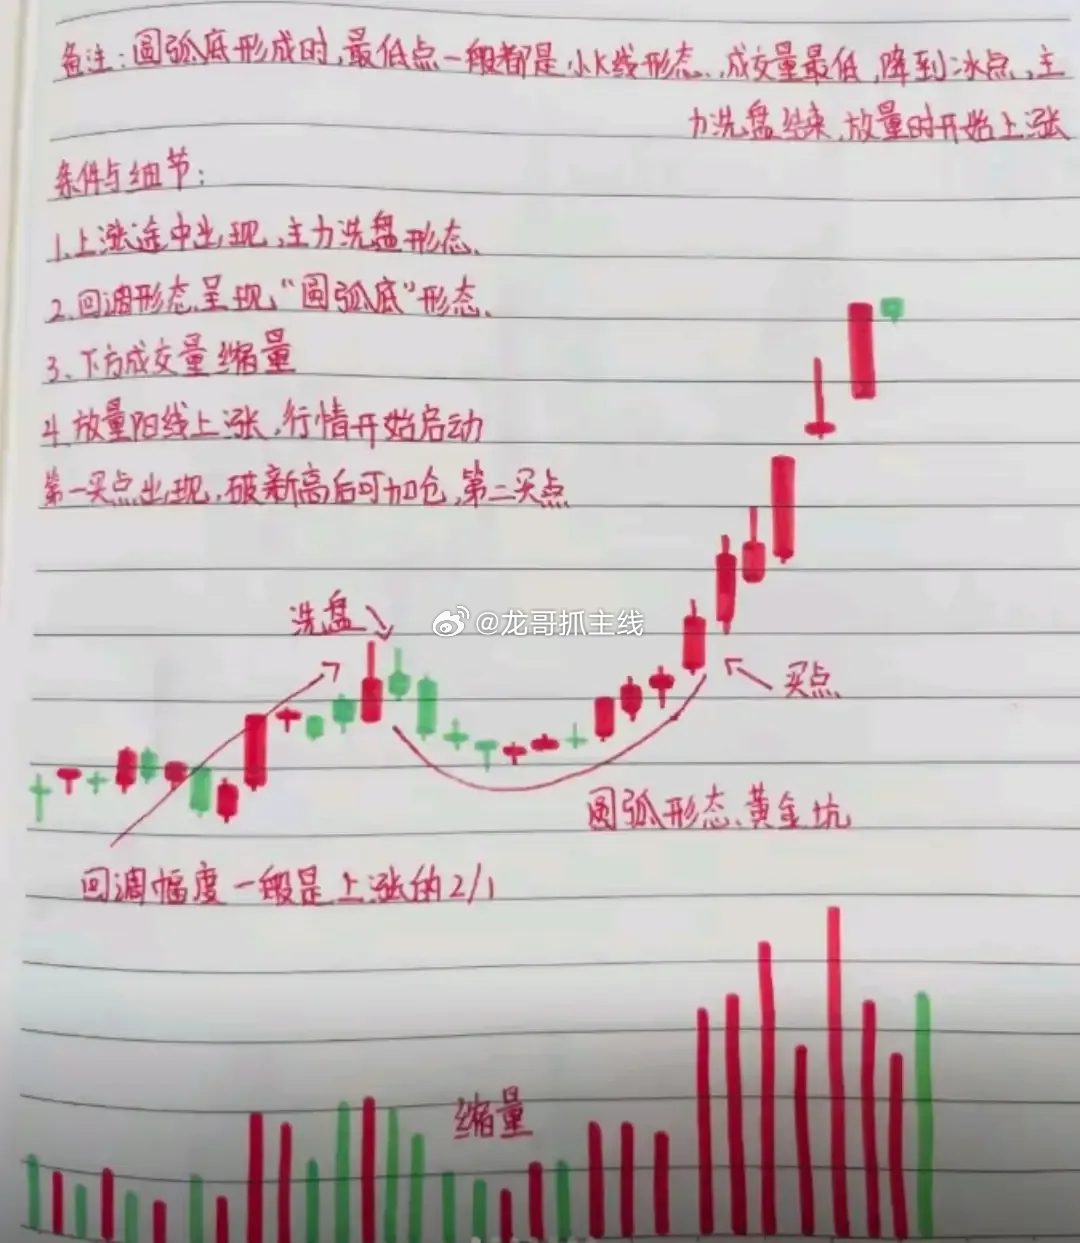 备注：圆弧底形成时，最低点一般都是小K线形态、成交量最低，降到冰点，主
力洗盘结束，放量时开始上涨
条件与细节：
1、上涨途中出现，主力洗盘形态、
2、回调形态呈现“圆弧底”形态、
3、下方成交量缩量
4、放量阳线上涨，行情开始启动
第一买点出现，破新高后可加仓，第二买点
洗盘
@龙哥抓主线
买点
圆弧形态、黄金坑
回调幅度一般是上涨的2/1
缩量